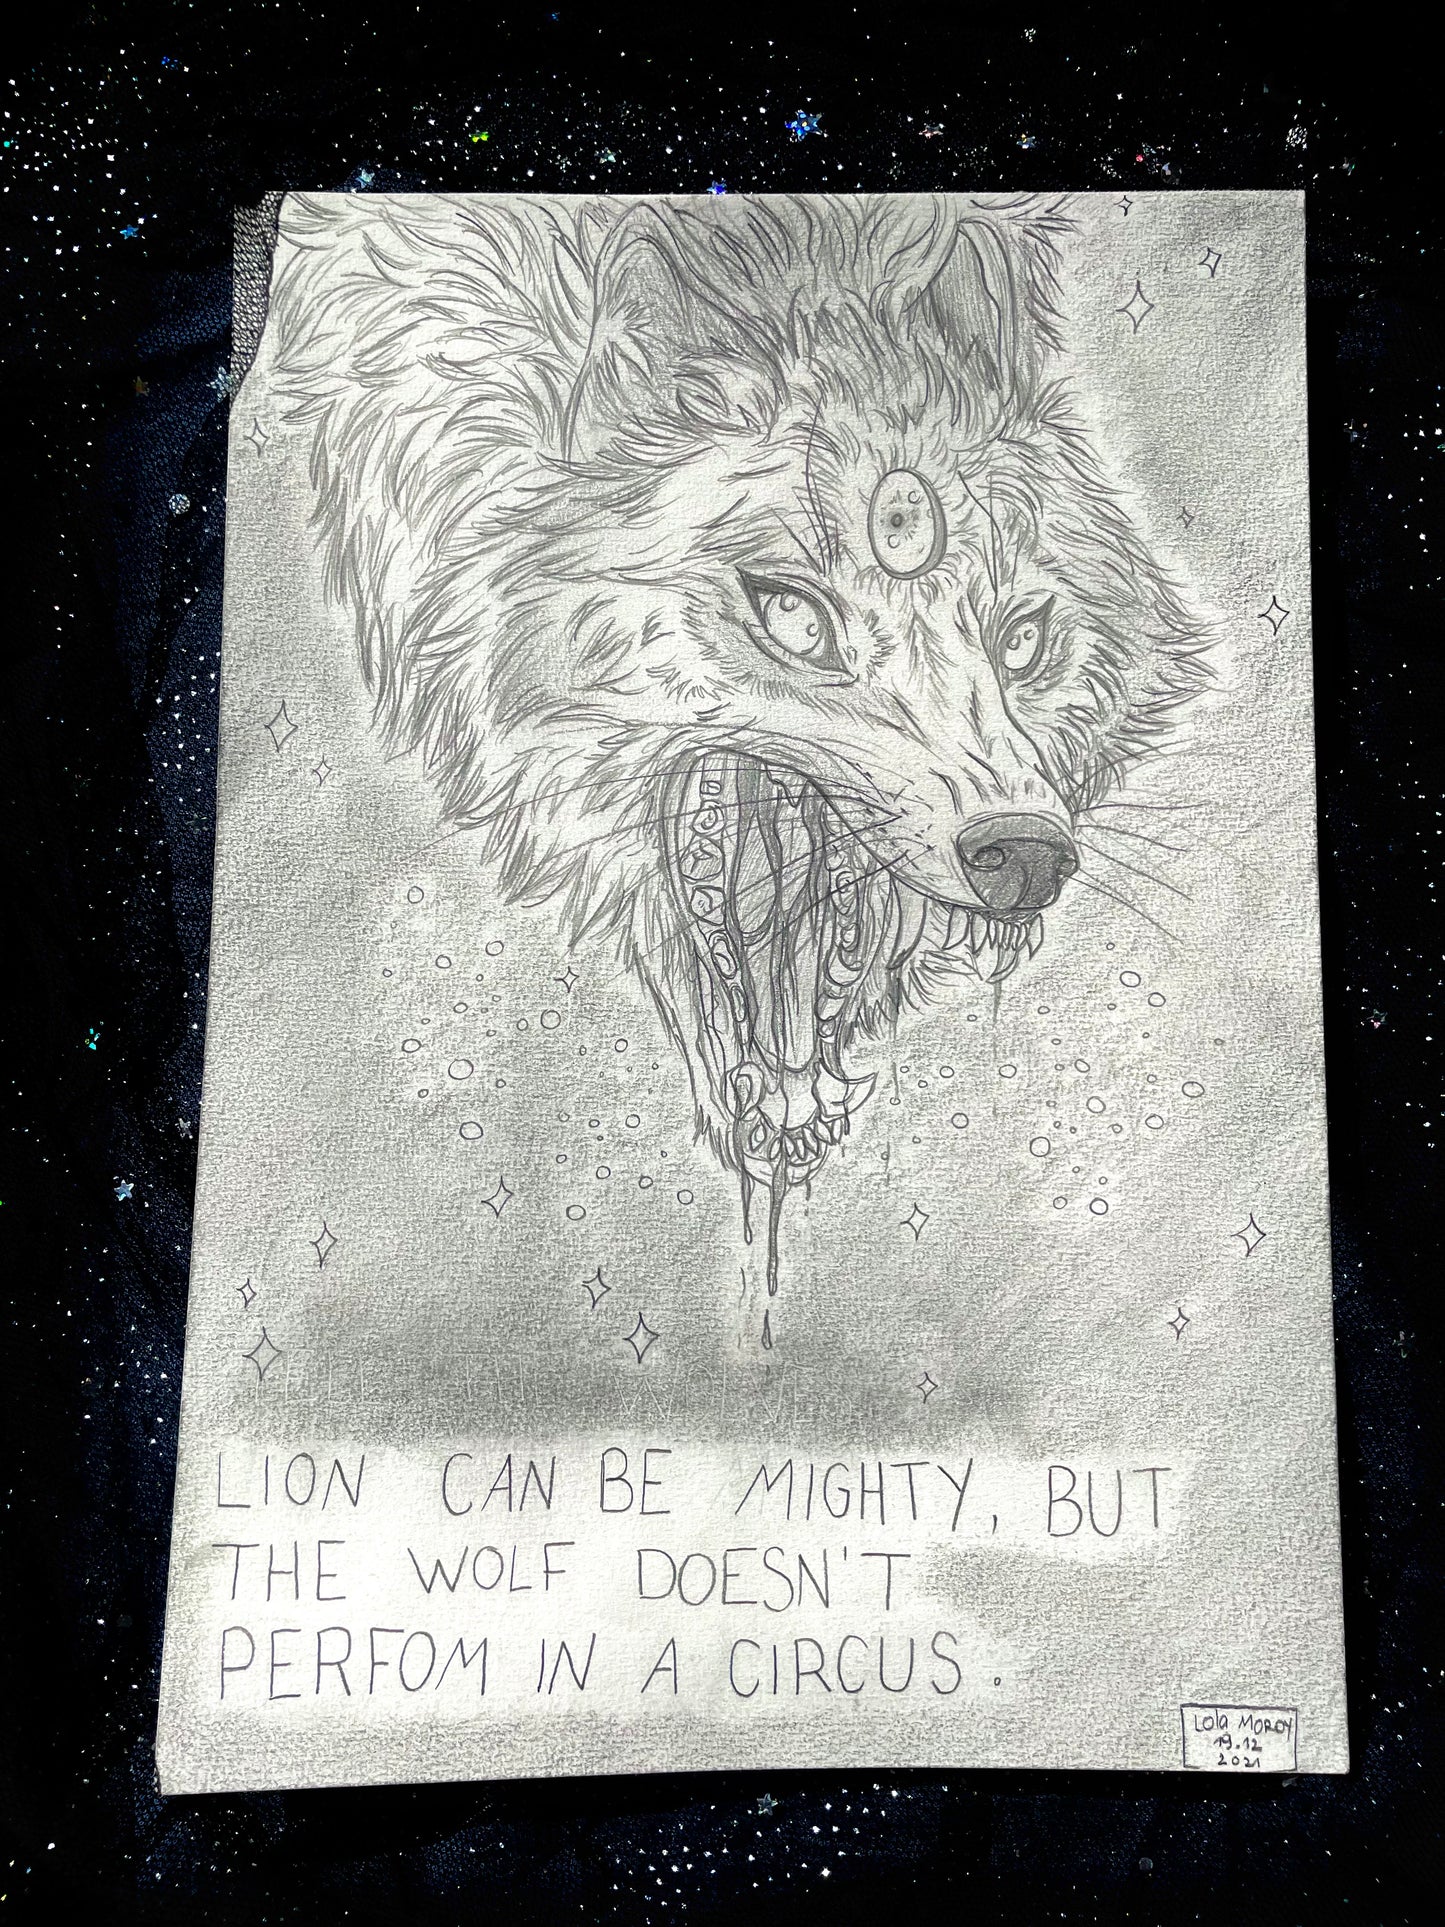 LION CAN BE MIGHTY, BUT
THE WOLF DOESN'T
PERFOM IN A CIRCUS.
Lola MOROY
19.12
2021